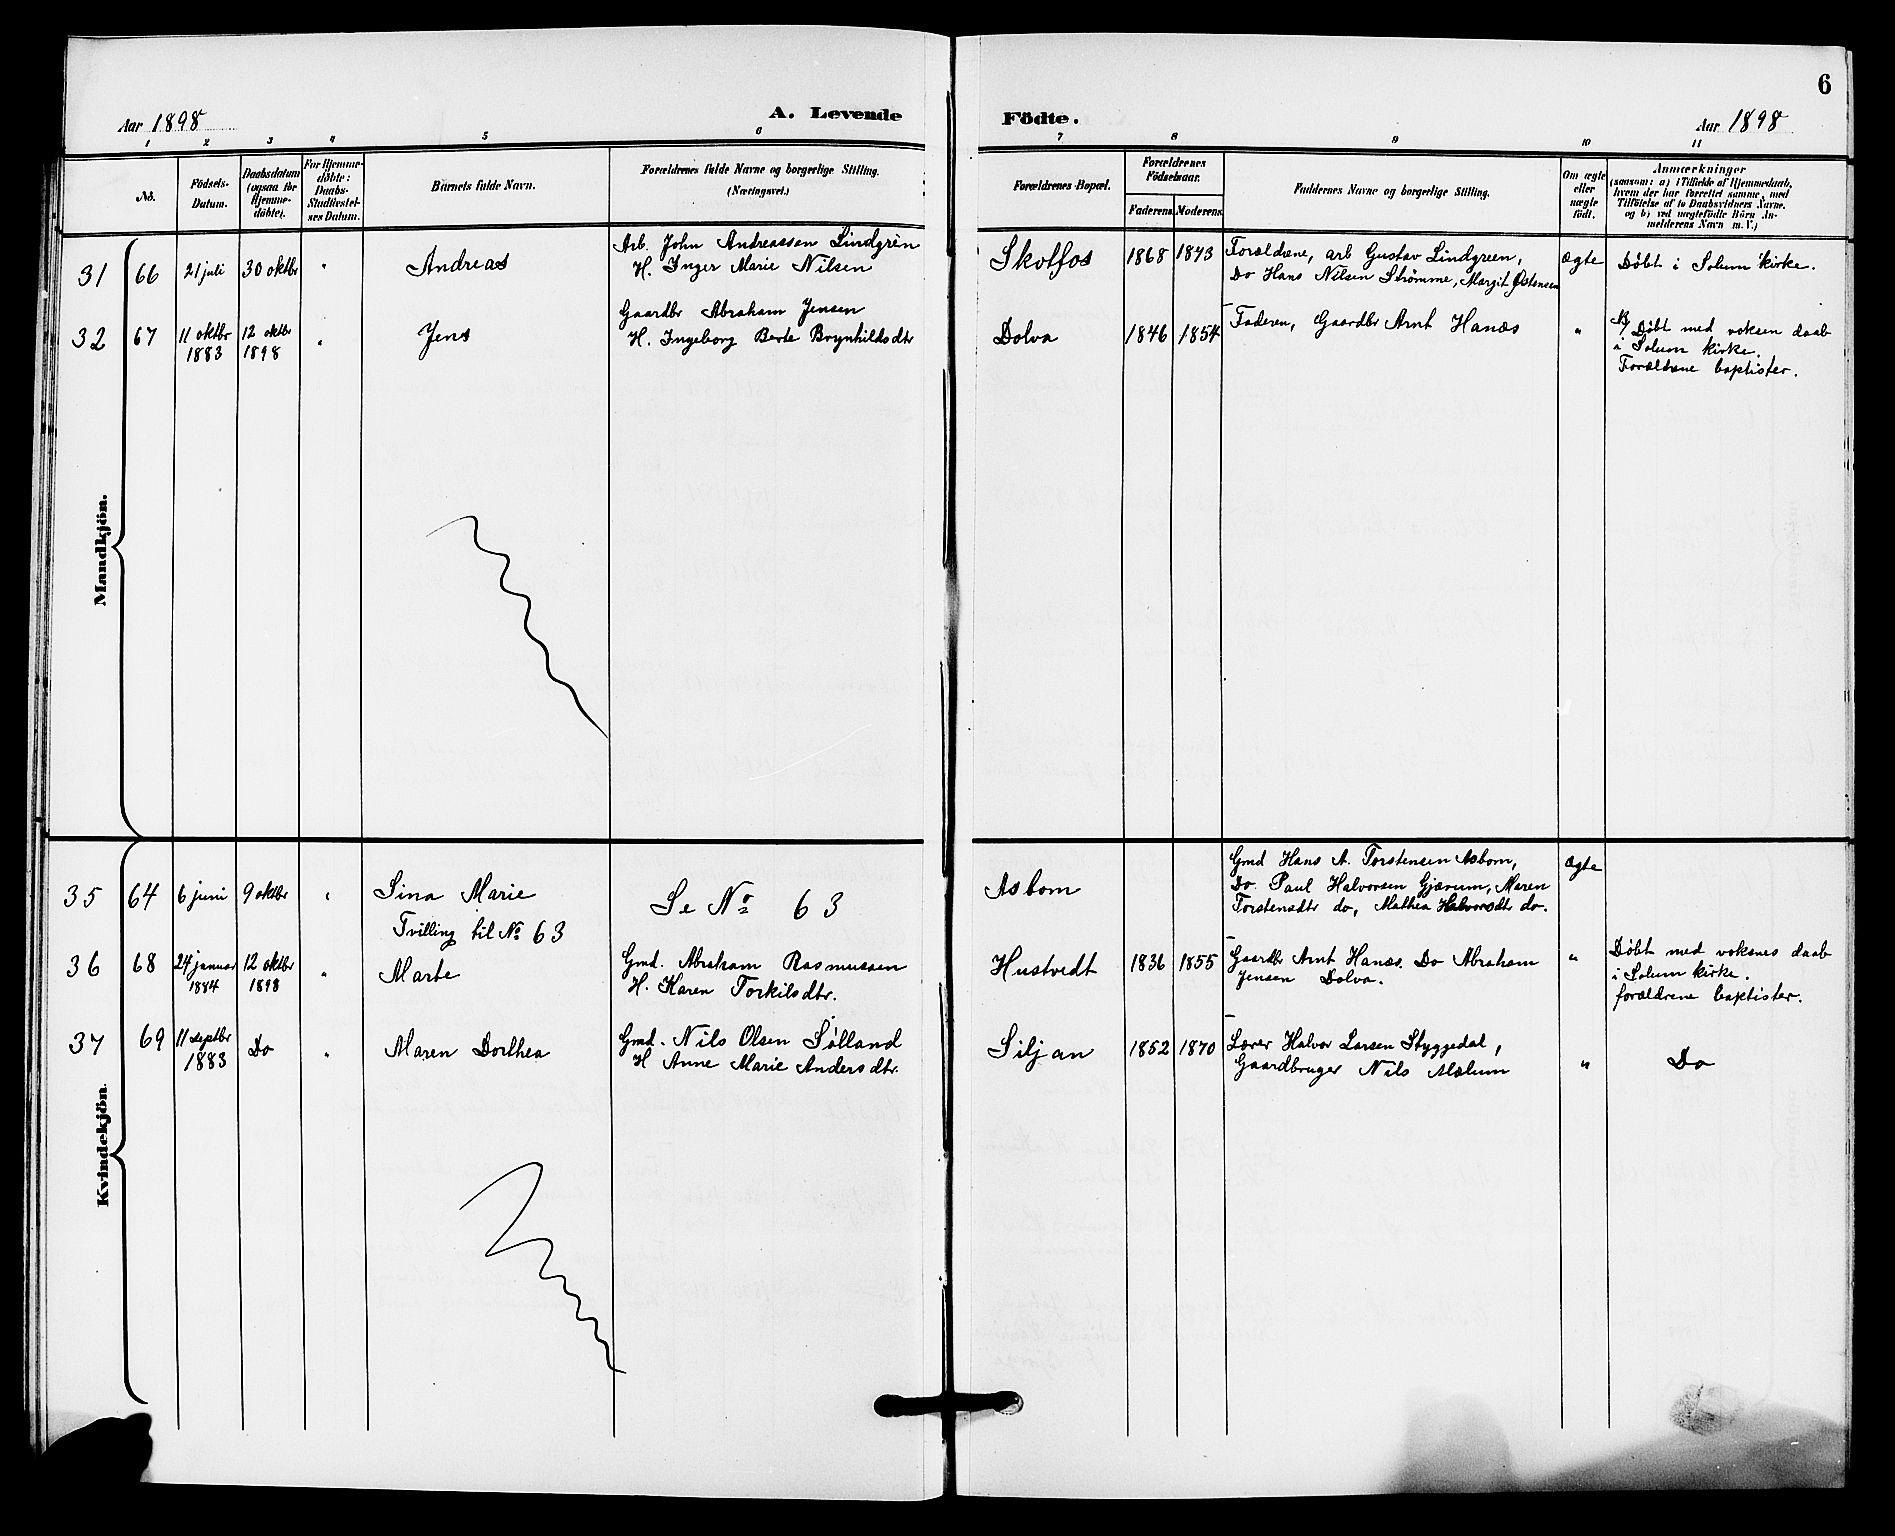 6
Aar 1898
A. Levende Födte.
Aar 1898
1 2 3 4 5 6 7 8 9 10 11
No.
Födsels-
Datum.
Daabsdatum
(ogsaa for
Hjemme-
döbte).
For Hjemme-
döbte:
Daabs-
Stadfæstel-
ses Datum.
Barnets fulde Navn.
Forældrenes fulde Navne og borgerlige Stilling.
(Næringsvei.)
Forældrenes Bopæl.
Forældrenes
Födselsaar.
Faderens. Moderens.
Faddernes Navne og borgerlige Stilling.
Om ægte
eller
uægte
født.
Anmærkninger
(saasom: a) i Tilfælde af Hjemmedaab,
hvem der har forrettet samme, med
Tilföielse af to Daabsvidners Navne.
og b) ved uægtefödte Börn An-
melderens Navn m. V.)
Mandkjön.
31 66 21 juli 30 oktbr " Andreas
Arb. John Andreassen Lindgrèn
H. Inger Marie Nilsen
Skotfos 1868 1873
Forældrene, arb Gustav Lindgreen,
Do Hans Nilsen Strømme, Margit Østensen
ægte
Døbt i Solum kirke.
32 67 11 oktbr
1883
12 oktbr
1898
" Jens
Gaardbr Abraham Jensen
H. Ingeborg Berte Brynhildsdtr
Dolva 1846 1854
Faderen, Gaardbr Arnt Hanæs
"
Døbt med voksen daab
i Solum kirke.
Forældrene baptister.
Kvindekjön.
35 64 6 juni 9 oktbr " Sina Marie
Tvilling til No 63
Se No 63
Asbom
Gmd Hans A. Torstensen Asbom,
Do. Paul Halvorsen Gjærum, Maren
Torstensdtr do, Mathea Halvorsdtr do.
ægte
36 68 24 januar
1884
12 oktbr
1898
" Marte
Gmd. Abraham Rasmussen
H. Karen Torkilsdtr.
Hustvedt 1836 1855
Gaardbr Arnt Hanæs. Do Abraham
Jensen Dolva.
"
Døbt med voksnes daab
i Solum kirke.
forældrene baptister.
37 69 11 septbr
1883
Do " Maren Dorthea
Gmd. Nils Olsen Sølland
H Anne Marie Andersdtr.
Siljan 1852 1870
Lærer Halvor Larsen Styggedal,
Gaardbruger Nils Mælum
" Do